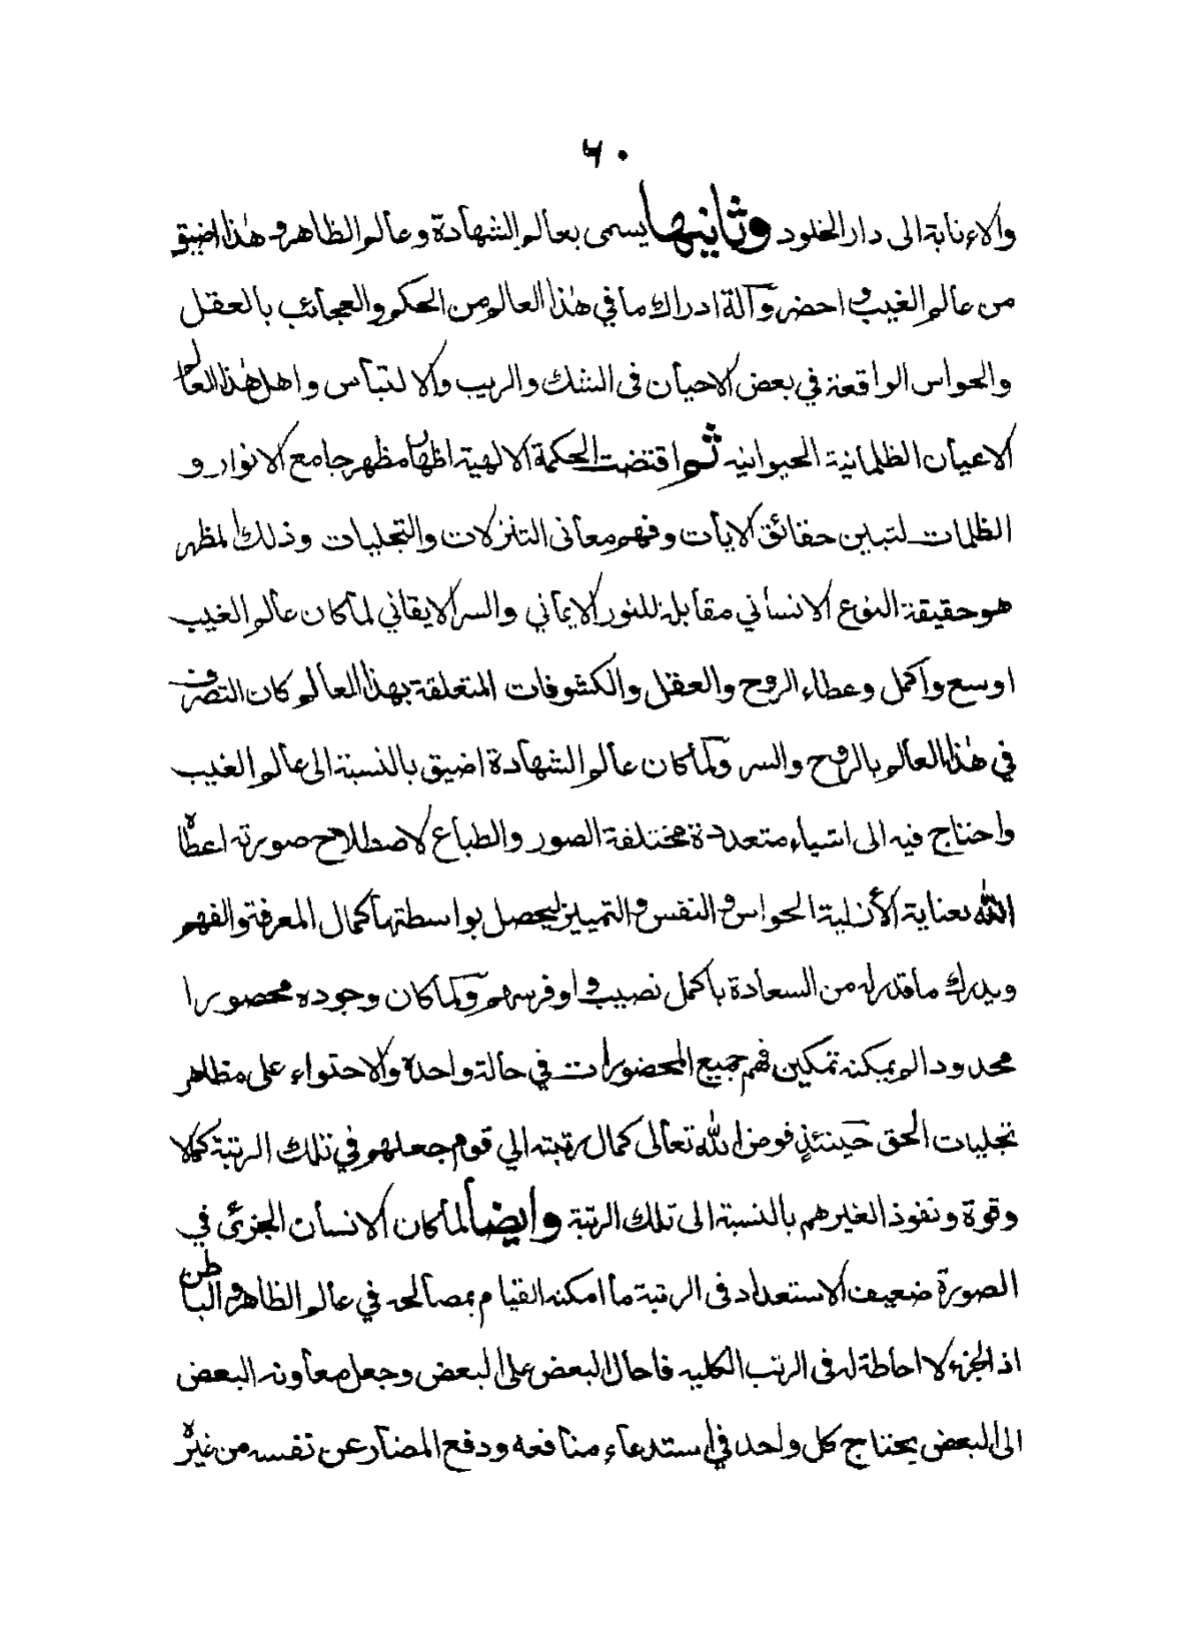 ٦٠
والاءنابة الى دار الخلود وثانيها يسمى بعالم الشهادة وعالم الظاهر وهذا اضيق
من عالم الغيب و احضر وآلة ادراك ما في هذا العالم من الحكم والعجائب بالعقل
والحواس الواقعة في بعض الاحيان فى الشك والريب والالتباس واهل هذا العالم
الاعيان الظلمانية الحيوانيه ثم اقتضت الحكمة الالهية اظهار مظهر جامع الانوار و
الظلمات لتبين حقائق الايات وفهم معانى التنزلات والتجليات وذلك المظهر
هو حقيقة النوع الانساني مقابلة للنور الايماني والسر الايقاني لما كان عالم الغيب
اوسع واكمل وعطاء الروح والعقل والكشوفات المتعلقة بهذا العالم كان التصرف
في هذا العالم بالروح والسر ولما كان عالم الشهادة اضيق بالنسبة الى عالم الغيب
واحتاج فيه الى اشياء متعددة مختلفة الصور والطباع لاصطلاح صورته اعطاه
الله بعناية الأزلية الحواس و النفس و التمييز ليحصل بواسطتها كمال المعرفة والفهم
ويدرك ما قدر له من السعادة باكمل نصيب و اوفر سهم ولما كان وجوده محصورا
محدودا لم يمكنه تمكين فهم جميع المحضورات في حالة واحدة والاحتواء على مظاهر
تجليات الحق حينئذٍ فوض الله تعالى كمال مرتبته الي قوم جعلهم في تلك الرتبة كملا
وقوة ونفوذ الغيرهم بالنسبة الى تلك الرتبة وايضاً لما كان الانسان الجزئى في
الصورة ضعيف الاستعداد فى الرتبة ما امكنه القيام بمصالحه في عالم الظاهر والباطن
اذ الجزء لا احاطة له فى الرتب الكليه فاحال البعض على البعض وجعل معاونه البعض
الى البعض يحتاج كل واحد في استدعاء منافعه ودفع المضار عن نفسه من غيره